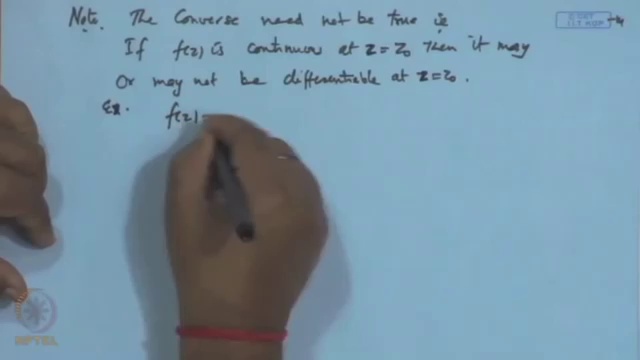 Note. The Converse need not be true ie
If f(z) is continuous at z = z₀ then it may
Or may not be differentiable at z = z₀.
Ex. f(z) =
NPTEL